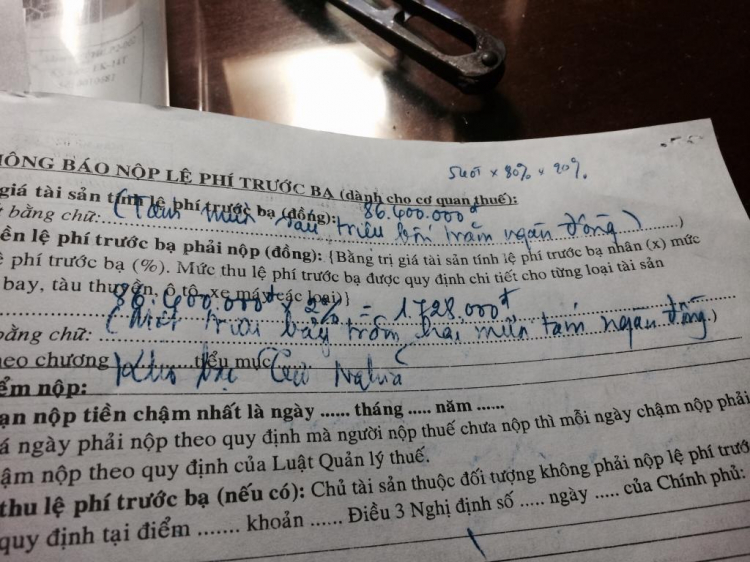 ÔNG BÁO NỘP LỆ PHÍ TRƯỚC BẠ (dành cho cơ quan thuế):
giá tài sản tính lệ phí trước bạ (đồng): 86.400.000đ
bằng chữ: (Tám mươi sáu triệu bốn trăm ngàn đồng)
ền lệ phí trước bạ phải nộp (đồng): {Bằng trị giá tài sản tính lệ phí trước bạ nhân (x) mức
ệ phí trước bạ (%). Mức thu lệ phí trước bạ được quy định chi tiết cho từng loại tài sản
bay, tàu thuyền, ô tô, xe máy các loại)}
86.400.000đ x 2% = 1728.000đ
bằng chữ: (Một triệu bảy trăm hai mươi tám ngàn đồng)
eo chương tiểu mục
ểm nộp:
ạn nộp tiền chậm nhất là ngày ...... tháng ..... năm ......
á ngày phải nộp theo quy định mà người nộp thuế chưa nộp thì mỗi ngày chậm nộp phải
ậm nộp theo quy định của Luật Quản lý thuế.
thu lệ phí trước bạ (nếu có): Chủ tài sản thuộc đối tượng không phải nộp lệ phí trướ
quy định tại điểm ....... khoản ...... Điều 3 Nghị định số ..... ngày ..... của Chính phủ: